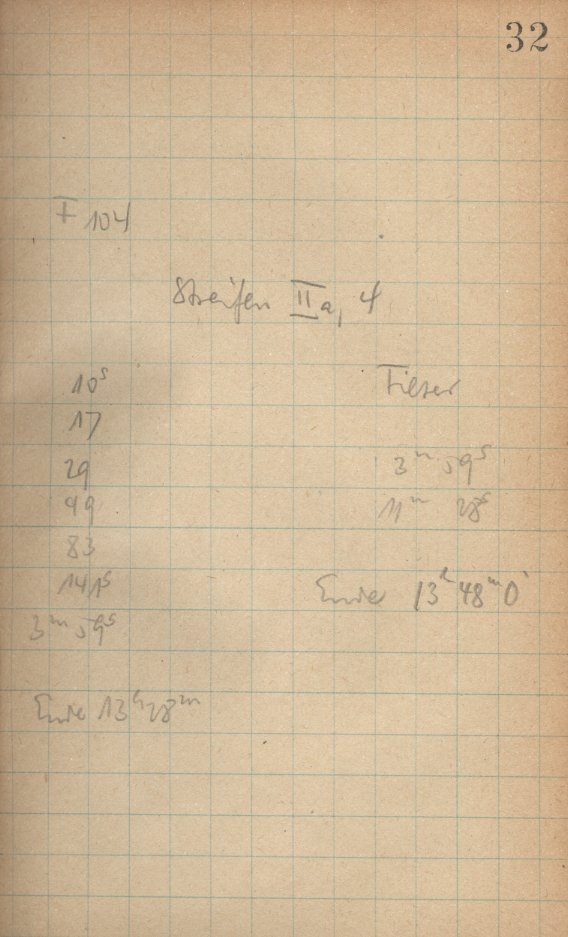 32
I 104
Streifen IIa, 4
10s
17
29
49
83
141s
3m 59s
Ende 13h28m
Filter
3m 59s
11m 28s
Ende 13h48m0